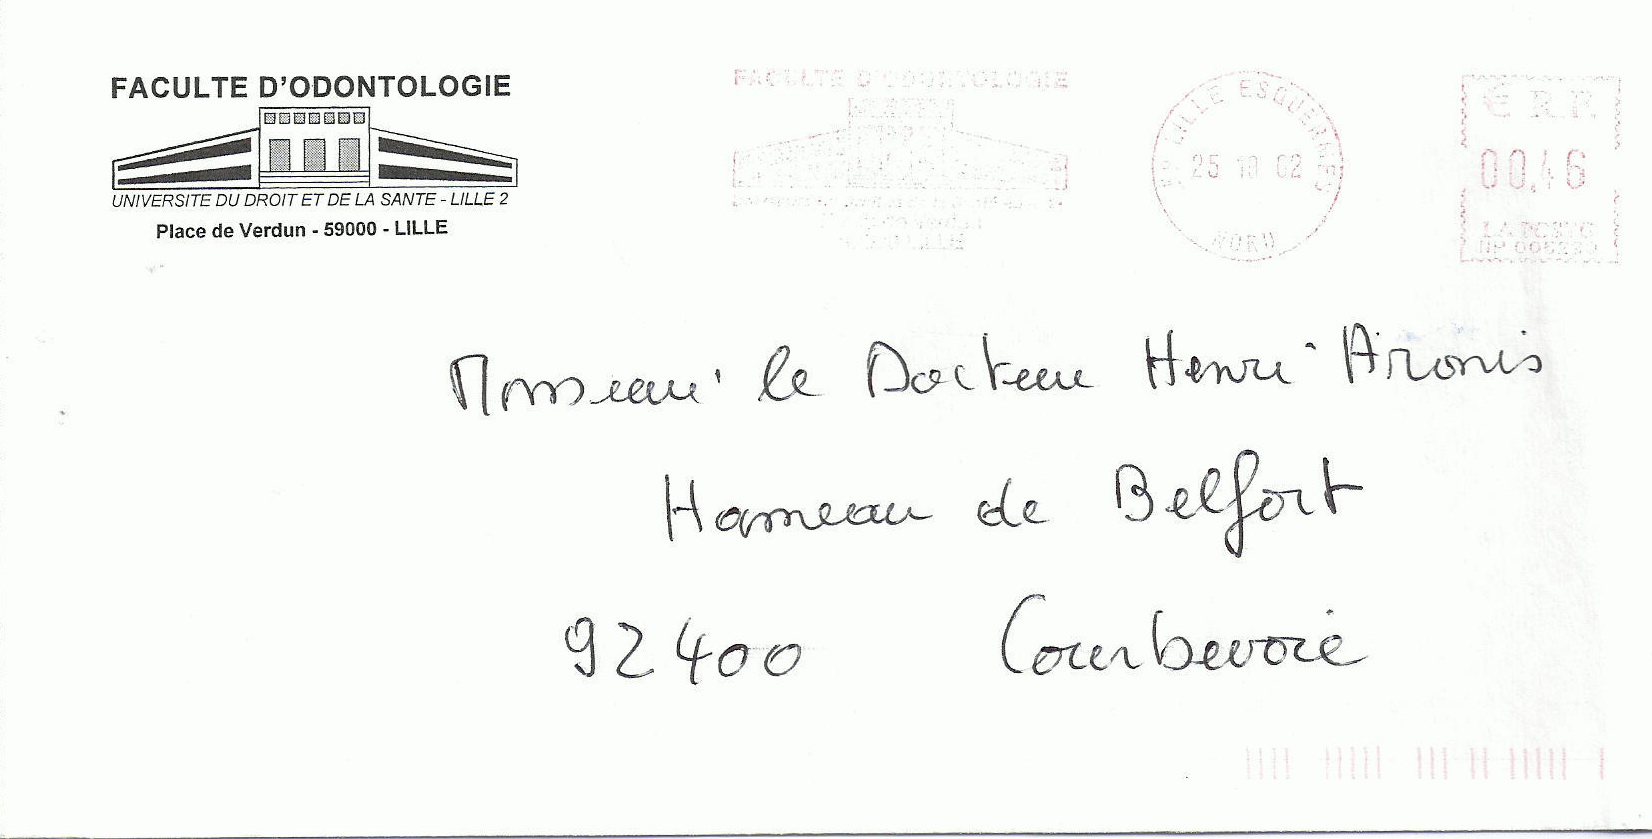 FACULTE D'ODONTOLOGIE
UNIVERSITE DU DROIT ET DE LA SANTE - LILLE 2
Place de Verdun - 59000 - LILLE
FACULTE D'ODONTOLOGIE
LILLE ESQUERMES
25 10 02
NORD
€ R.F.
00,46
LA POSTE
Monsieur le Docteur Henri Aronis
Hameau de Belfort
92400 Courbevoie